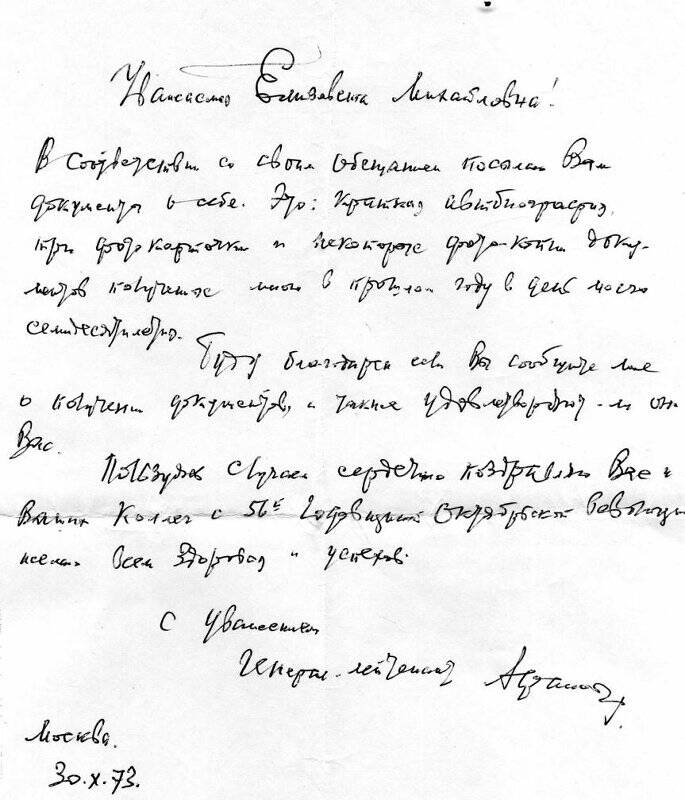 Уважаемая Елизавета Михайловна!
В соответствии со своим обещанием посылаю Вам
документы о себе. Это: Краткая автобиография,
три фотокарточки и некоторые фото-копии доку-
ментов полученные мною в прошлом году в день моего
семидесятилетия.
Буду благодарен если Вы сообщите мне
о получении документов, а также удовлетворяют-ли они
Вас.
Пользуясь случаем сердечно поздравляю Вас и
Ваших Коллег с 56й Годовщиной Октябрьской Революции
желаю всем здоровья и успехов.
С уважением
Генерал-лейтенант
Москва.
30.X.73.